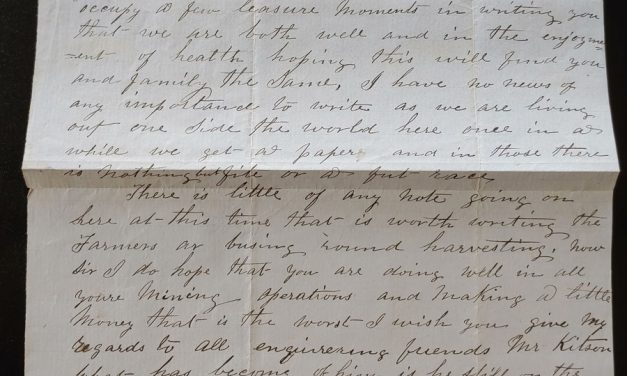 occupy a few leasure moments in writing you
that we are both well and in the enjoyme-
=ent of health hoping this will find you
and family the Same, I have no news of
any importance to write as we are living
out one side the world here once in a
while we get a paper and in those there
is nothing but fite or a fut race
There is little of any note going on
here at this time that is worth writing the
Farmers ar busing round harvesting. now
sir I do hope that you are doing well in all
youre Mining operations and making a little
Money that is the worst I wish you give my
regards to all enquirering friends Mr Kitson
what has become of him is he still on the